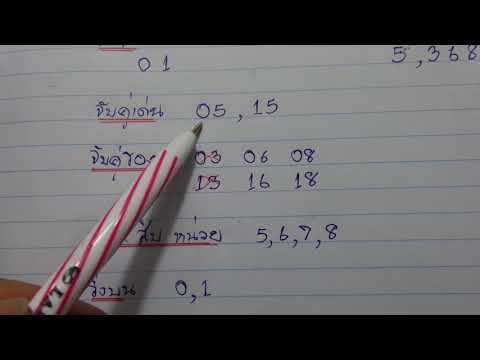 0 1
5,368
จับคู่เด่น 05, 15
จับคู่รอง 03 06 08
13 16 18
สิบ หน่วย 5,6,7,8
วิ่งบน 0,1